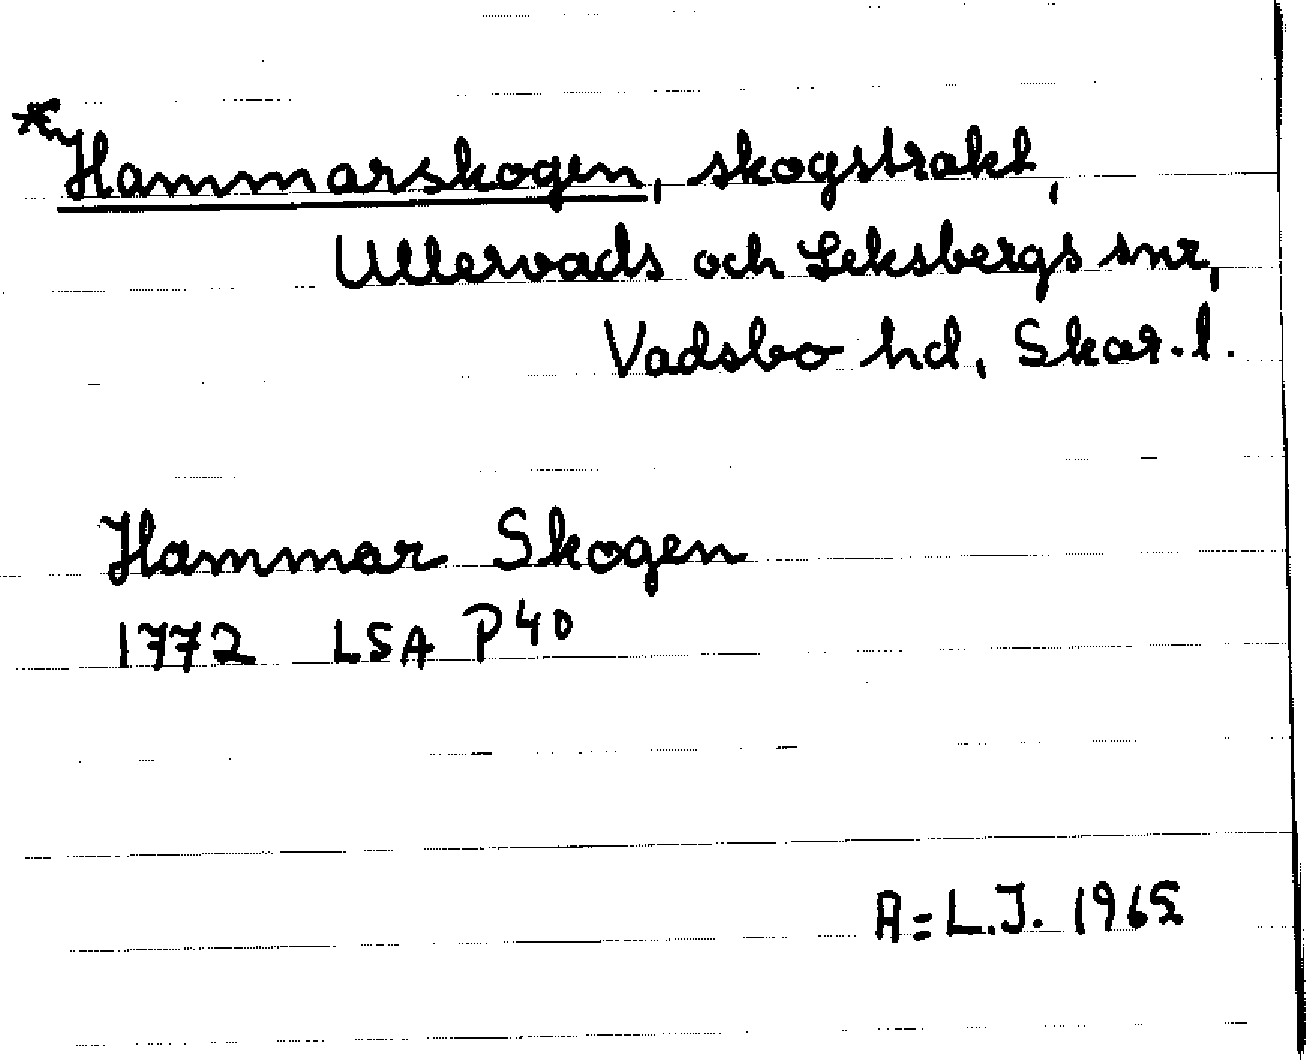 *Hammarskogen, skogstrakt,
Ullervads och Leksbergs snr,
Vadsbo hd, Skar. l.
Hammar Skogen
1772 LSA P 40
A=L.J. 1965